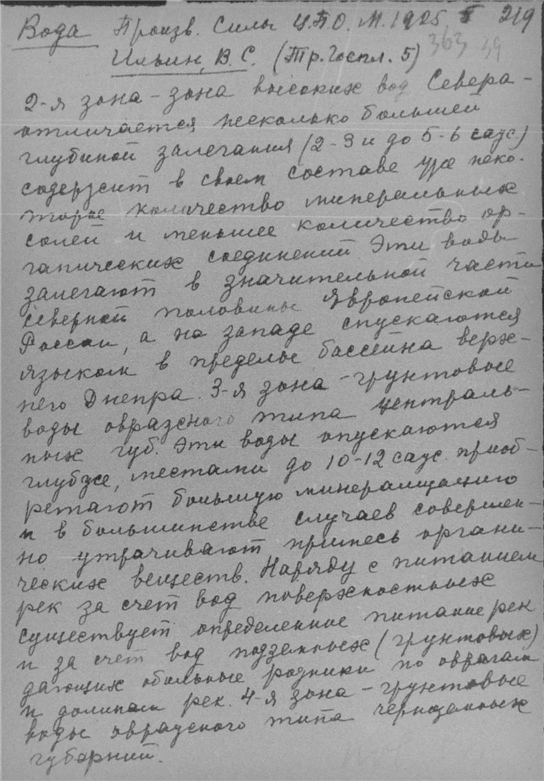 Вода Произв. Силы Ц.П.О. М. 1925 219
363 39
Ильин, В.С. (Тр. Госпл. 5)
2-я зона - зона высоких вод Севера -
отличается несколько большей
глубиной залегания (2-3 и до 5-6 саж)
содержит в своем составе уже неко-
торое количество минеральных
солей и меньшее количество ор-
ганических соединений Эти воды
залегают в значительной части
северной половины Европейской
России, а на западе спускаются
языком в пределы бассейна верх-
него Днепра. 3-я зона - грунтовые
воды овражного типа централь-
ных губ. Эти воды опускаются
глубже, местами до 10-12 саж. приоб-
ретают большую минерализацию
и в большинстве случаев совершен-
но утрачивают примесь органи-
ческих веществ. Наряду с питанием
рек за счет вод поверхностных
существует определенное питание рек
и за счет вод подземных (грунтовых)
дающих обильные родники по оврагам
и долинам рек. 4-я зона - грунтовые
воды овражного типа черноземных
губерний.